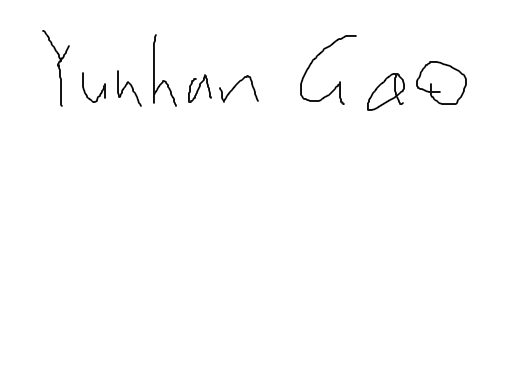 Yunhan Gao